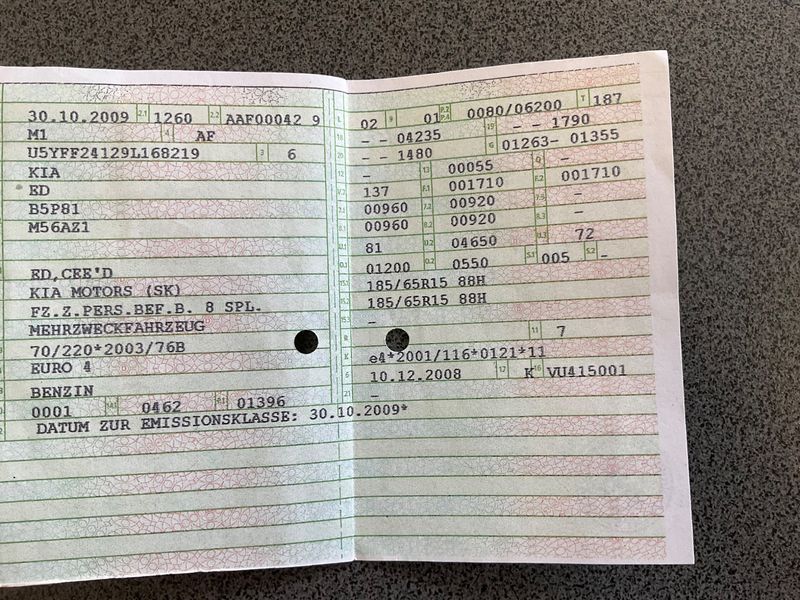 30.10.2009 2.1 1260 2.2 AAF00042 9
M1 4 AF
U5YFF24129L168219 3 6
KIA
ED
B5P81
M56AZ1
ED,CEE'D
KIA MOTORS (SK)
FZ.Z.PERS.BEF.B. 8 SPL.
MEHRZWECKFAHRZEUG
70/220*2003/76B
EURO 4
BENZIN
0001 0462 P.1 01396
DATUM ZUR EMISSIONSKLASSE: 30.10.2009*
L 02 9 01 P.2 P.4 0080/06200 T 187
18 - - 04235 19 - - 1790
20 - - 1480 G 01263- 01355
- 13 00055 Q -
V.7 137 F.1 001710 F.2 001710
7.1 00960 7.2 00920 7.3 -
8.1 00960 8.2 00920 8.3 -
U.1 81 U.2 04650 U.3 72
O.1 01200 O.2 0550 S.1 005 S.2 -
15.1 185/65R15 88H
15.2 185/65R15 88H
15.3 -
R 11 7
K e4*2001/116*0121*11
6 10.12.2008 17 K 16 VU415001
21 -